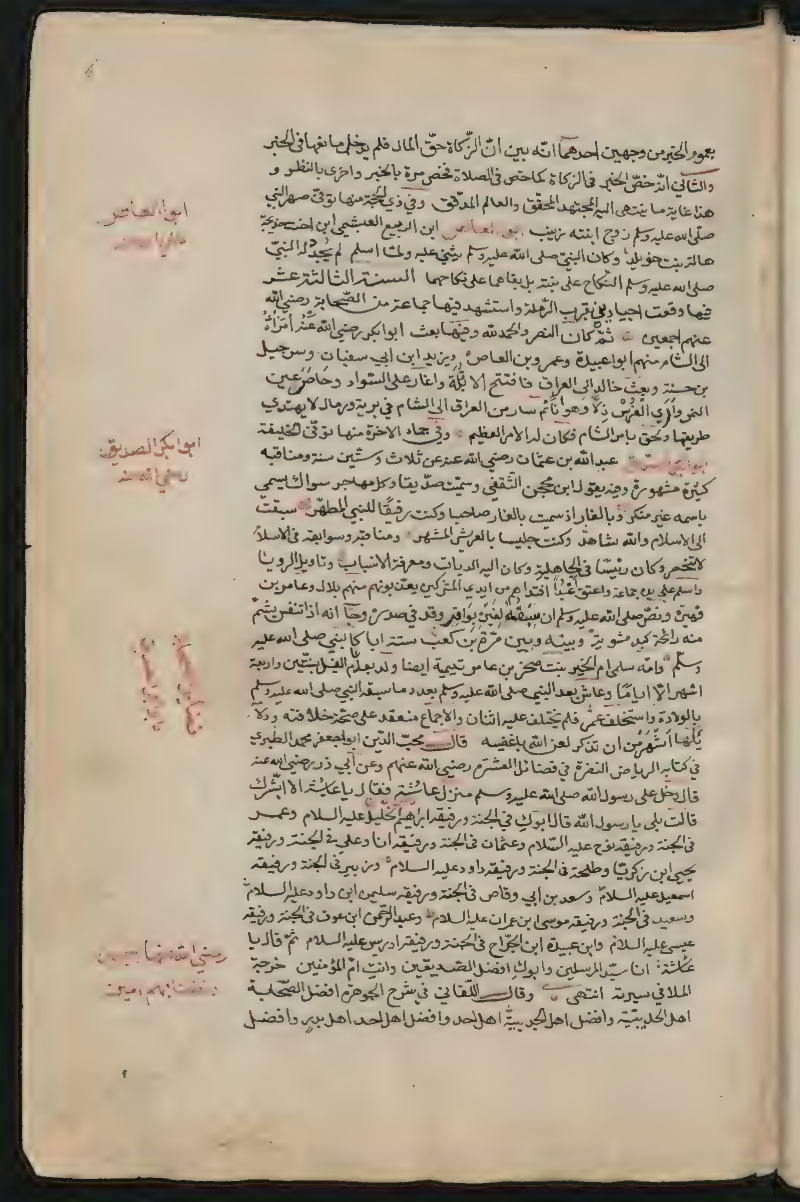 بعموم الخبر من وجهين احدهما انه بين ان الزكاة حق المال فلم يدخل مانعها في الخبر
والثاني انه خص الخبر في الزكاة كما خص في الصلاة فخص مرة بالخبر واخرى بالنظر و
هذا غاية ما ينتهى اليه المجتهد المحقق والعالم المدقق وفي ذي الحجة منها توفى صهر النبي
صلى الله عليه وسلم زوج ابنته زينب ابو العاص ابن الربيع العبشمى ابن اخت خديجة
هالة بنت خويلد وكان النبي صلى الله عليه وسلم يثنى عليه ولما اسلم لم يجدد له النبي
صلى الله عليه وسلم النكاح على بنته بل بقاهما على نكاحهما السنة الثالثة عشر
فيها وقعت اجنادين قرب الرملة واستشهد فيها جماعة من الصحابة رضي الله
عنهم اجمعين ثم كان النصر والحمد لله وفيها بعث ابو بكر رضي الله عنه امراءه
الى الشام منهم ابو عبيدة وعمرو بن العاص ويزيد ابن ابي سفيان وسرجيل
بن حسنة وبعث خالد الى العراق فافتتح الابلة واغار على السواد وحاصر عين
التمر واري الفرس ذلا وهوانا ثم سار من العراق الى الشام في برية ورمال لا يهتدي
طريقها ولحق بامر الشام فكان له الامر العظيم وفي جماد الاخرة منها توفى الخليفة
ابو بكر الصديق عبد الله بن عثمان رضي الله عنه عن ثلاث وستين سنة ومناقبه
كثيرة مشهورة وفيه يقول ابن محجن الثقفي وسميت صديقا وكل مهاجر سواك يسمى
باسمه غير منكر وبالغار اذ سميت بالغار صاحبا وكنت رفيقا للنبي المطهر سبقت
الى الاسلام والله شاهد وكنت جليسا بالعرش المشهر ومناقبه وسوابقه في الاسلام
لا تنحصر وكان رئيسا في الجاهلية وكان اليه الديات ومعرفة الانساب وتاويل الرويا
واسلم على يديه جماعة واعتق اعبدا افتداهم من ايدي المشركين يعذبونهم منهم بلال وعامر بن
فهيرة ونص صلى الله عليه وسلم ان سبقه لغيره بواقر وقر في صدره وجاء انه اذا تنفس يشم
منه رائحة كبد مشوية وبينه وبين مرة بن كعب ستة اباء كالنبي صلى الله عليه
وسلم وامه سلمى ام الخير بنت صخر بن عامر تيمية ايضا ولد بعد الفيل بسنتين واربعة
اشهر الا اياما وعاش بعد النبي صلى الله عليه وسلم بعدد ما سبقه النبي صلى الله عليه وسلم
بالولادة واستخلف عمر فلم يختلف عليه اثنان والاجماع منعقد على صحة خلافته ودلا
يلها اشهر من ان تذكر لعن الله باغضيه قال محب الدين ابو جعفر محمد الطبري
في كتابه الرياض النضرة في فضائل العشرة رضي الله عنهم وعن ابي ذر رضي الله عنه
قال دخل على رسول الله صلى الله عليه وسلم منزل عائشة فقال يا عائشة الا ابشرك
قالت بلى يا رسول الله قال ابوك في الجنة ورفيقه ابراهيم الخليل عليه السلام وعمر
في الجنة ورفيقه نوح عليه السلام وعثمان في الجنة ورفيقه انا وعلي في الجنة ورفيقه
يحيى ابن زكريا وطلحة في الجنة ورفيقه داود عليه السلام وزبير في الجنة ورفيقه
اسمعيل عليه السلام وسعد بن ابي وقاص في الجنة ورفيقه سليمن ابن داود عليه السلام
وسعيد في الجنة ورفيقه موسى ابن عمران عليه السلام وعبد الرحمن ابن عوف في الجنة ورفيقه
عيسى عليه السلام وابن عبيدة ابن الجراح في الجنة ورفيقه ادريس عليه السلام ثم قال يا
عائشة انا سيد المرسلين وابوك افضل الصديقين وانت ام المؤمنين خرجه
الملا في سيرته انتهى وقال اللقاني في شرح الجوهرة افضل الصحابة
اهل الحديبية وافضل اهل الحديبية اهل احد وافضل اهل احد اهل بدر وافضل
ابو العاص
رضي الله عنه
ابو بكر الصديق
رضي الله عنه
رضي الله عنها
ونفعنا بهم امين